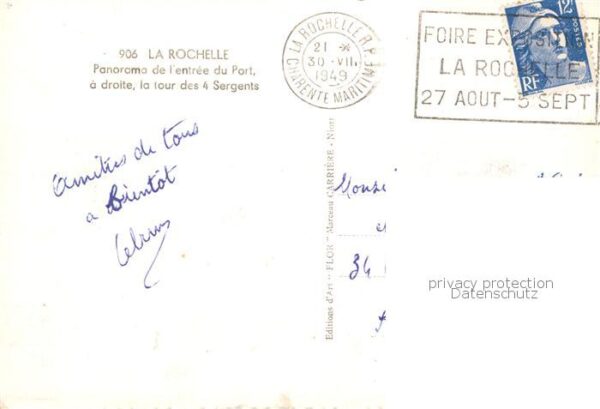 906 LA ROCHELLE
Panorama de l'entrée du Port,
à droite, la tour des 4 Sergents
LA ROCHELLE R.P.
21 H
30 - VII
1949
CHARENTE MARITIME
FOIRE EXPOSITION
LA ROCHELLE
27 AOUT - 5 SEPT
12F
POSTES
RF
Amitiés de tous
a Bientot
Editions d'Art "FLOR" Marceau CARRIÈRE - Niort
34
privacy protection
Datenschutz